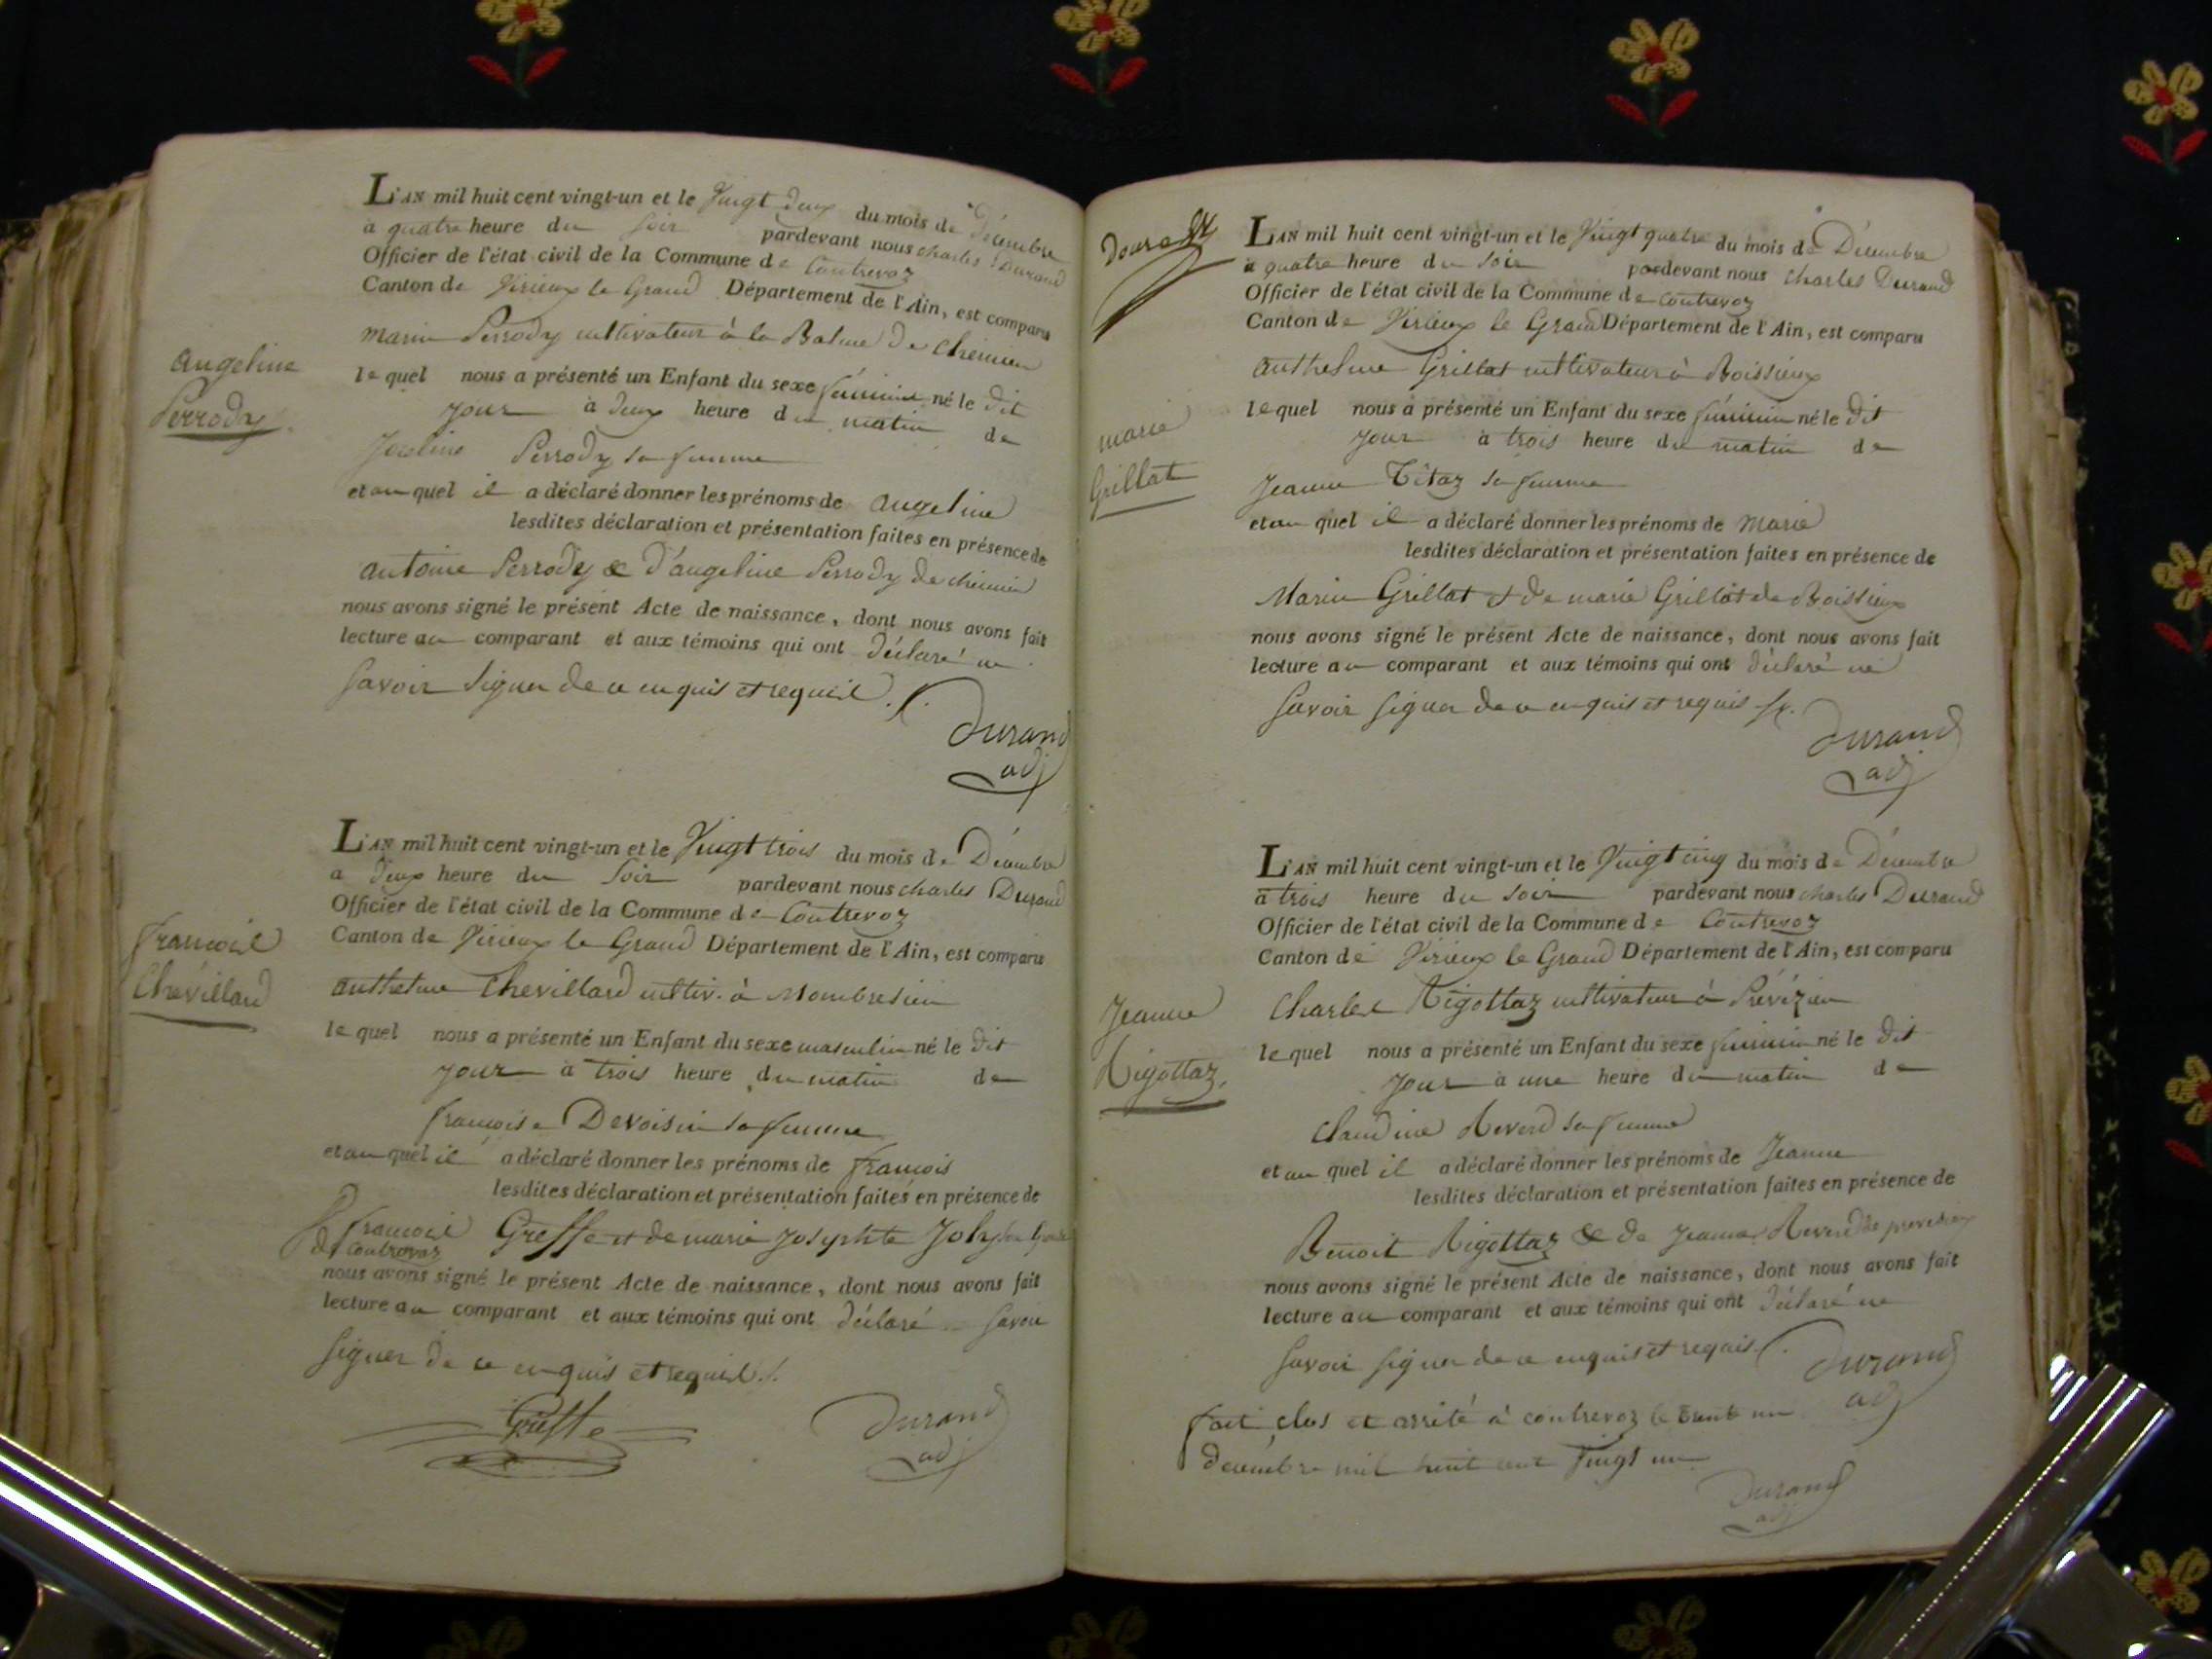 L'AN mil huit cent vingt-un et le Vingt deux du mois de Décembre
à quatre heure du Soir pardevant nous charles Durand
Officier de l'état civil de la Commune de Contrevoz
Canton de Virieux le Grand Département de l'Ain, est comparu
Marin Perrody cultivateur à la Balme De Chemin
angeline
Perrody
le quel nous a présenté un Enfant du sexe féminin né le dit
jour à deux heure du matin de
Perrody sa femme
et au quel il a déclaré donner les prénoms de angeline
lesdites déclaration et présentation faites en présence de
antoine Perrody & d'angeline Perrody de chemin
nous avons signé le présent Acte de naissance, dont nous avons fait
lecture au comparant et aux témoins qui ont déclaré ne
Savoir signer de ce enquis et requis
Durand
adj
L'AN mil huit cent vingt-un et le Vingt trois du mois de Décembre
à deux heure du Soir pardevant nous charles Durand
Officier de l'état civil de la Commune de Contrevoz
Canton de Virieux le Grand Département de l'Ain, est comparu
francois
Chevilland
anthelme Chevilland cultiv. à Mombresieu
le quel nous a présenté un Enfant du sexe masculin né le dit
jour à trois heure du matin de
francoise Devoisin sa femme
et au quel il a déclaré donner les prénoms de francois
lesdites déclaration et présentation faites en présence de
francois Greffe et de marie Josephte Joly
de Contrevoz
nous avons signé le présent Acte de naissance, dont nous avons fait
lecture au comparant et aux témoins qui ont déclaré Savoir
signer de ce enquis et requis
Greffe
Durand
adj
L'AN mil huit cent vingt-un et le Vingt quatre du mois de Décembre
à quatre heure du Soir pardevant nous charles Durand
Officier de l'état civil de la Commune de Contrevoz
Canton de Virieux le Grand Département de l'Ain, est comparu
anthelme Grillat cultivateur à Boissieux
marie
Grillat
le quel nous a présenté un Enfant du sexe féminin né le dit
jour à trois heure du matin de
Jeanne Titaz sa femme
et au quel il a déclaré donner les prénoms de Marie
lesdites déclaration et présentation faites en présence de
Marin Grillat & de marie Grillat de Boissieux
nous avons signé le présent Acte de naissance, dont nous avons fait
lecture au comparant et aux témoins qui ont déclaré ne
Savoir signer de ce enquis et requis
Durand
adj
L'AN mil huit cent vingt-un et le Vingt cinq du mois de Décembre
à trois heure du Soir pardevant nous charles Durand
Officier de l'état civil de la Commune de Contrevoz
Canton de Virieux le Grand Département de l'Ain, est comparu
Jeanne
Rigottaz
Charles Rigottaz cultivateur à Prévézieu
le quel nous a présenté un Enfant du sexe féminin né le dit
jour à une heure du matin de
Claudine Reverd sa femme
et au quel il a déclaré donner les prénoms de Jeanne
lesdites déclaration et présentation faites en présence de
Benoit Rigottaz & de Jeanne Reverd de prevezieu
nous avons signé le présent Acte de naissance, dont nous avons fait
lecture au comparant et aux témoins qui ont déclaré ne
Savoir signer de ce enquis et requis
Durand
adj
fait, clos et arrêté à contrevoz le trente un
decembre mil huit cent vingt un
Durand
adj